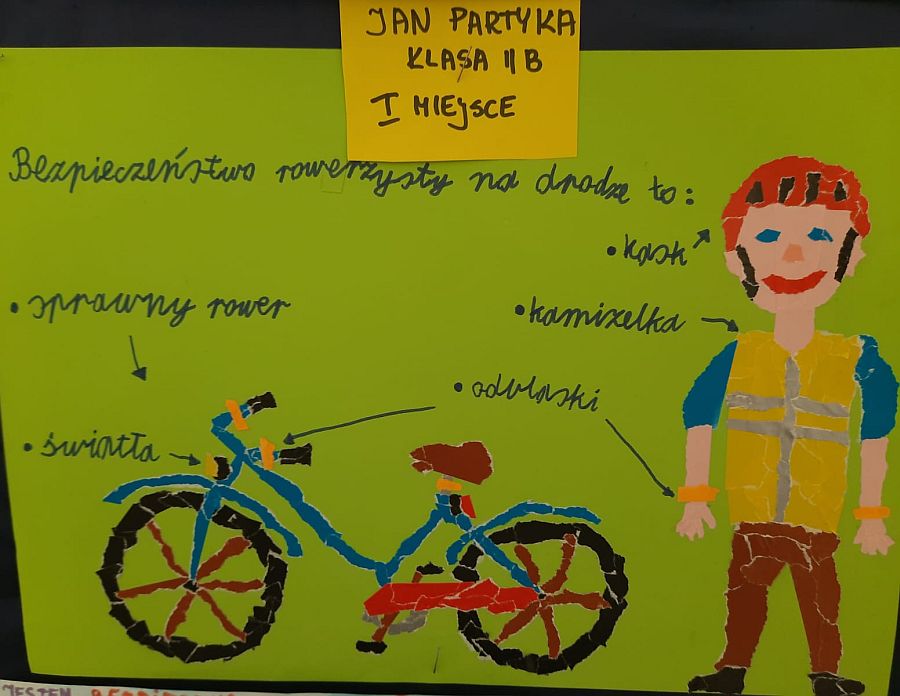 JAN PARTYKA
KLASA II B
I MIEJSCE
Bezpieczeństwo rowerzysty na drodze to:
• kask
• sprawny rower
• kamizelka
• odblaski
• światła
JESTEM